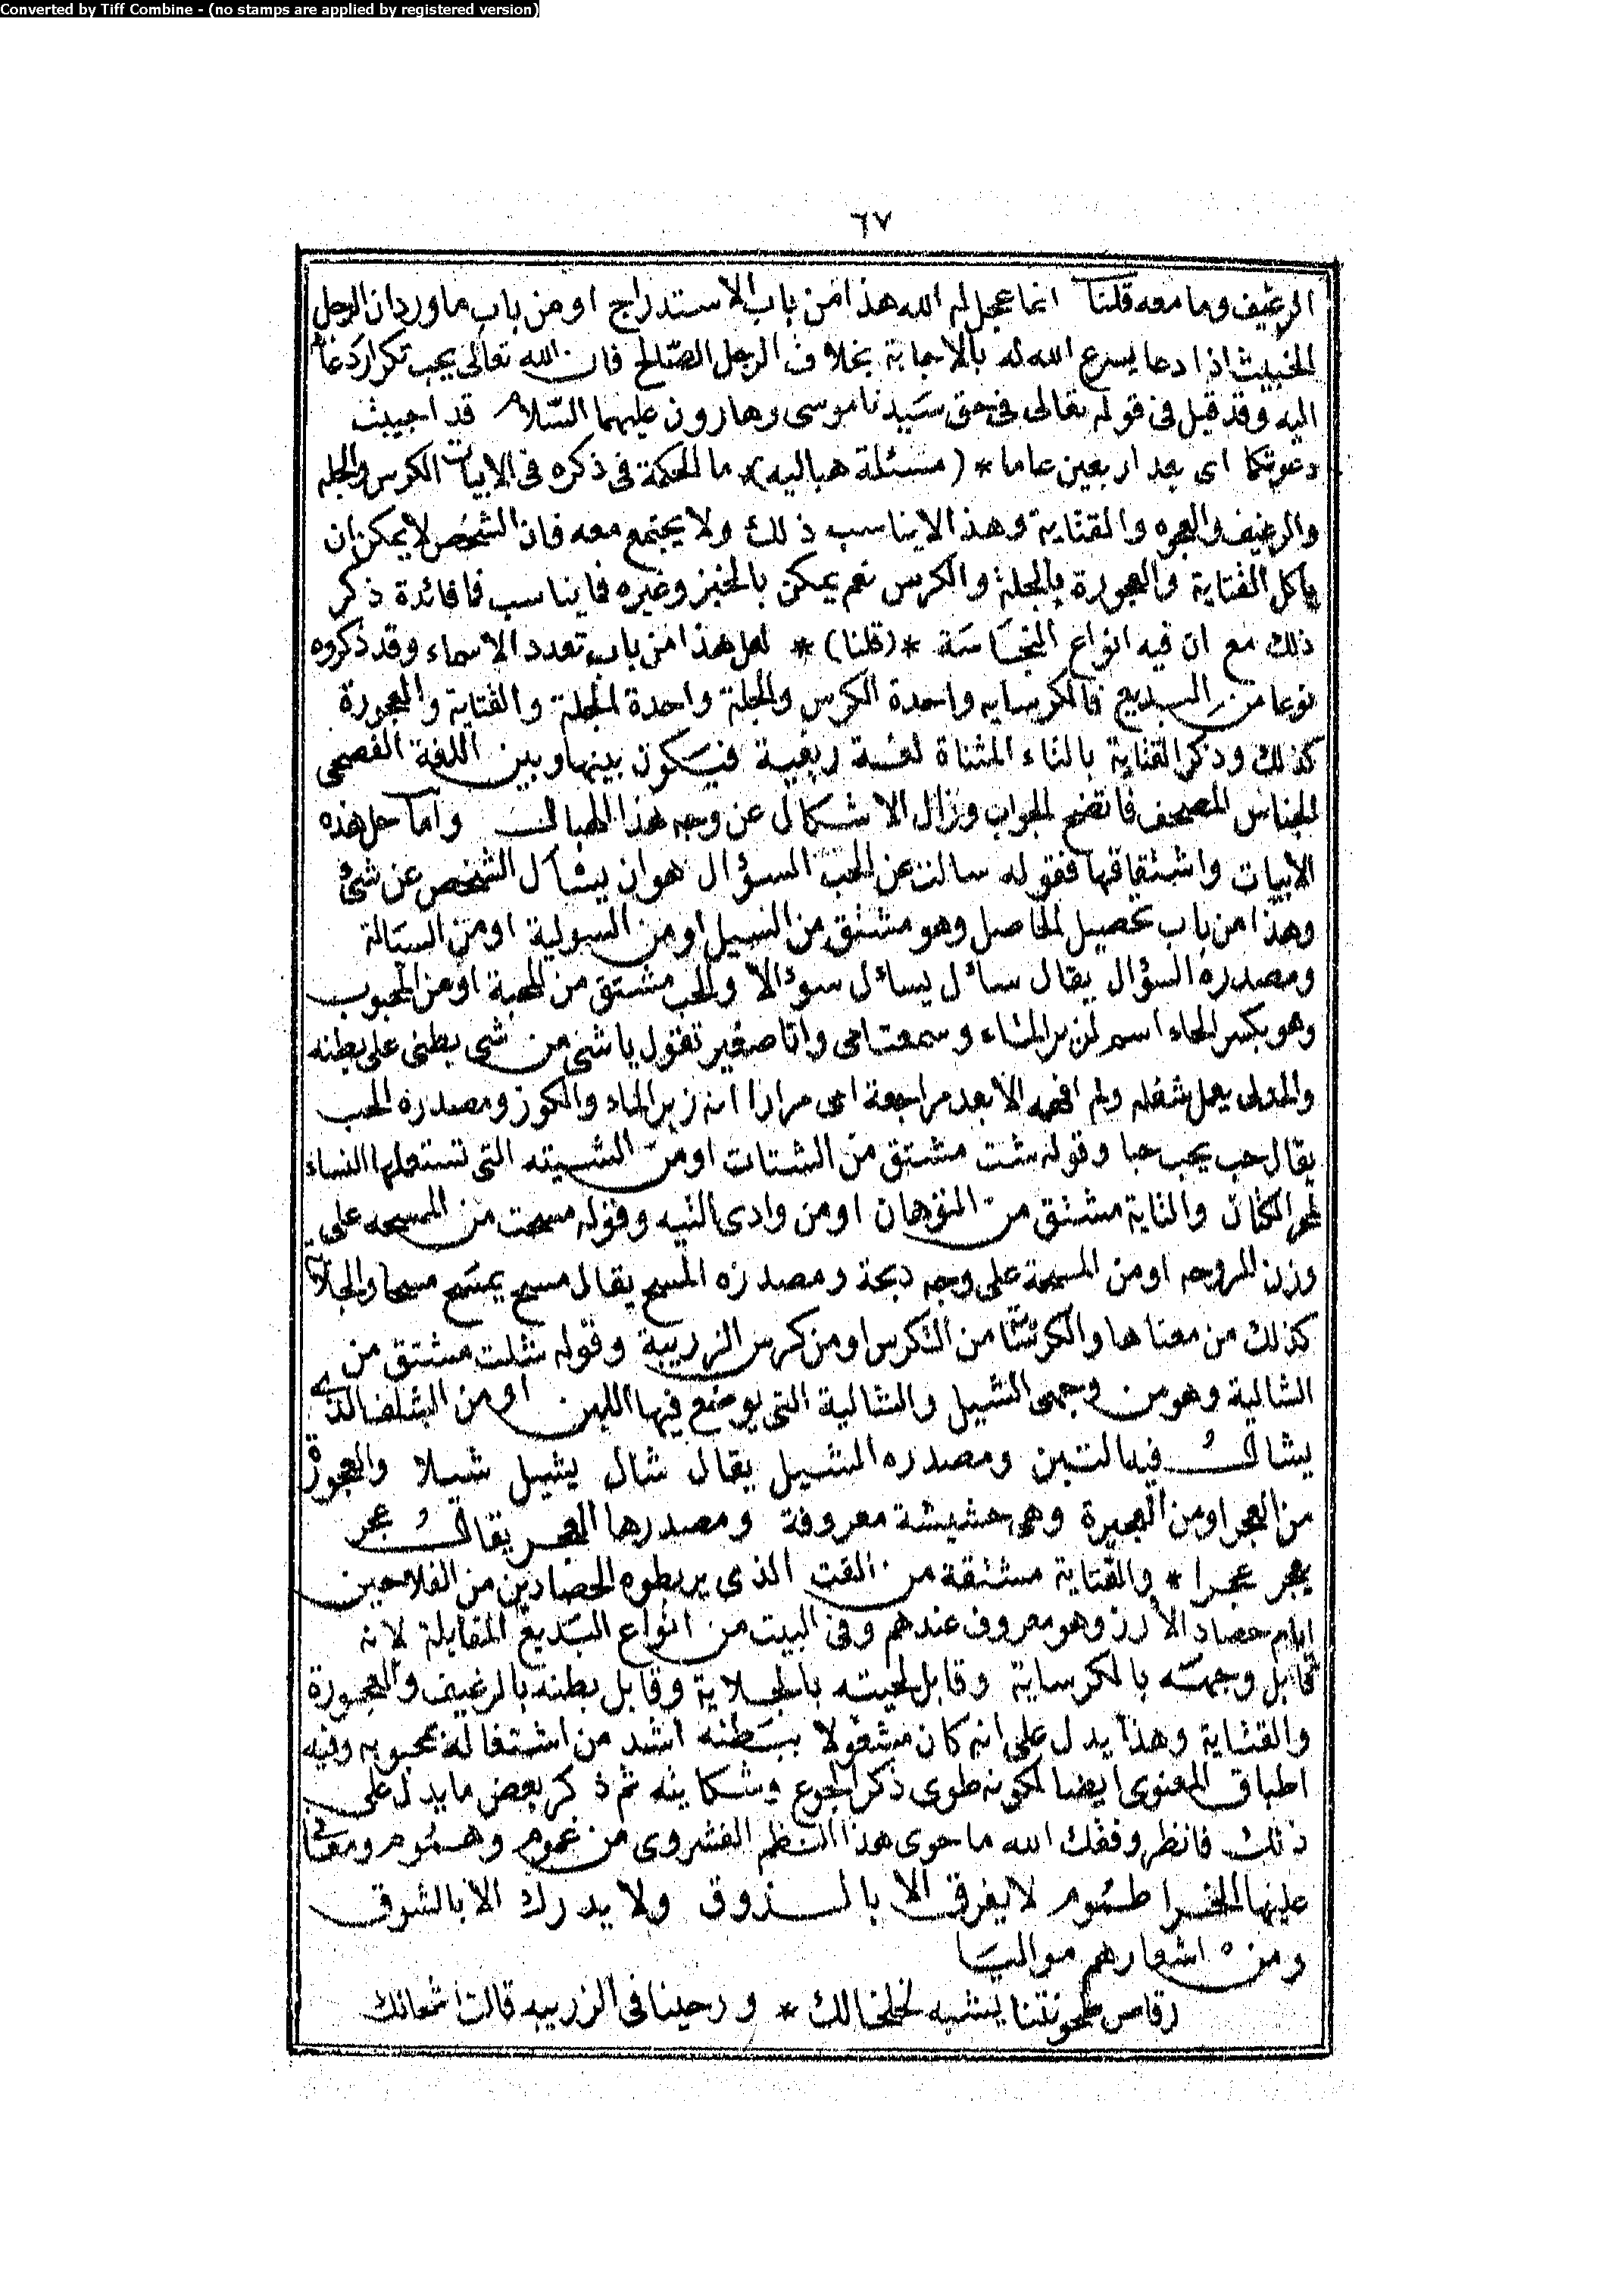 Converted by Tiff Combine - (no stamps are applied by registered version)
٦٧
الرغيف وما معه قلنا انما عجل له الله هذا من باب الاستدراج او من باب ما ورد ان الرجل
الخبيث اذا دعا يسرع الله له بالاجابة بخلاف الرجل الصالح فان الله تعالى يحب تكرار دعائه
اليه وقد قيل فى قوله تعالى فى حق سيدنا موسى وهارون عليهما السلام قد اجيبت
دعوتكما اى بعد اربعين عاما * (مسئلة هباليه) * ما الحكمة فى ذكره فى الابيات الكرس والجله
والرغيف والعجوره والقتاية وهذا لا يناسب ذلك ولا يجتمع معه فان الشخص لا يمكن ان
ياكل القتاية والعجورة بالجلة والكرس نعم يمكن بالخبز وغيره فما يناسب فما فائدة ذكر
ذلك مع ان فيه انواع النجاسة * (قلنا) * لعل هذا من باب تعدد الاسماء وقد ذكروه
نوعا من البديع فالكرسايه واحدة الكرس والجلة واحدة الجلة والقتاية والعجورة
كذلك وذكر القتاية بالتاء المثناة لغة ريفية فيكون بينها وبين اللغة الفصحى
الجناس المصحف فاتضح الجواب وزال الاشكال عن وجه هذا الهبال واما حل هذه
الابيات واشتقاقها فقوله سالت عن الحب السؤال هو ان يسأل الشخص عن شئ
وهذا من باب تحصيل الحاصل وهو مشتق من السيل او من السبولية او من السيالة
ومصدره السؤال يقال سائل يسائل سوءالا والحب مشتق من المحبة او من المحبوب
وهو بكسر الحاء اسم لمن بر الماء وسمعت امى وانا صغير تقول يا شى من شى بطنى على بطنه
والمدلى يعمل شغله ولم افهمه الا بعد مراجعة امى مرارا انه زير الماء والكوز ومصدره الحب
يقال حب يحب حبا وقوله شت مشتق من الشتات او من الشيته التى تستعملها النساء
لمر الكتان والتاية مشتق من التوهان او من وادى التيه وقوله مسحت من المسيحه على
وزن المروحه او من المسحة على وجه دبحة ومصدره المسح يقال مسح يمسح مسحا والجلا
كذلك من معناها والكرستا من التكرس او من كرس الزريبة وقوله شلت مشتق من
الشالية وهو من وجهى الشيل والشالية التى يوضع فيها اللبن او من الشلف الذى
يشال فيه التبن ومصدره الشيل يقال شال يشيل شيلا والعجورة
من العجر او من العجيرة وهى حشيشة معروفة ومصدرها العجر يقال عجر
يعجر عجرا * والقتاية مشتقة من القت الذى يربطوه الحصادين من الفلاحين
ايام حصاد الارز وهو معروف عندهم وفى البيت من انواع البديع المقابلة لانه
قابل وجهته بالكرساية وقابل لحيته بالجلاية وقابل بطنه بالرغيف والعجورة
والقتاية وهذا يدل على انه كان مشغولا ببطنه اشد من اشتغاله بمحبوبه وفيه
اطباق المعنوى ايضا لكونه طوى ذكر الجوع وشكايته ثم ذكر بعض ما يدل على
ذلك فانظر وفقك الله ما حوى هذا النظم الفشروى من غموم وهموم ومعانى
عليها الخرا طموم لا يفرق الا بالذوق ولا يدرك الا بالشوق
ومن اشعارهم مواليا
رقاص طحونتنا يشبه لخلخالك * ورحينا فى الزريبه قالت اشحالك